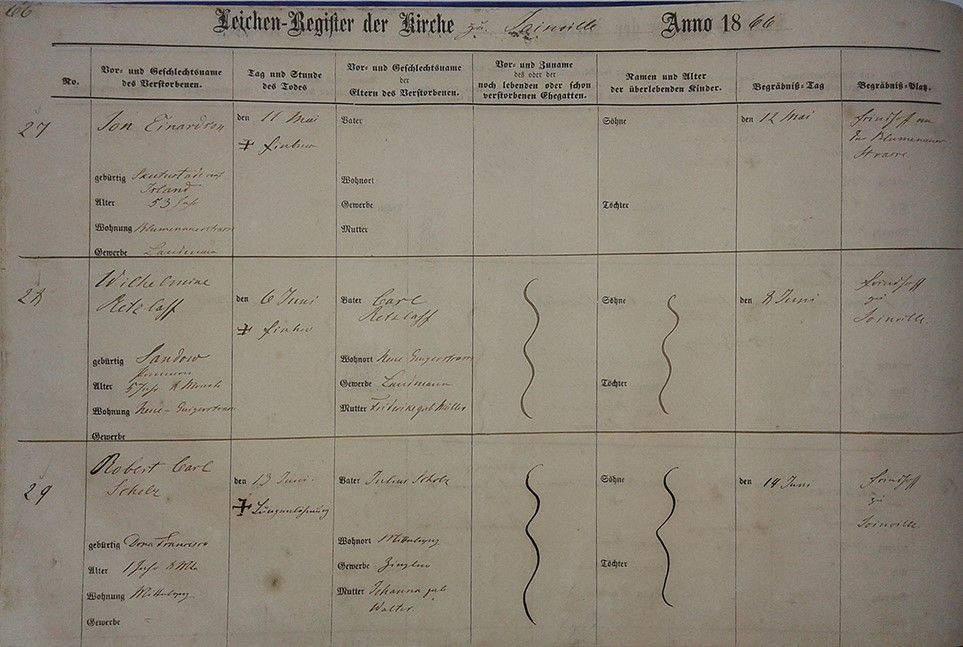 66
Leichen-Register der Kirche zu Joinville Anno 1866
No.
Vor- und Geschlechtsname
des Verstorbenen.
Tag und Stunde
des Todes
Vor- und Geschlechtsname
der
Eltern des Verstorbenen.
Vor- und Zuname
des oder der
noch lebenden oder schon
verstorbenen Ehegatten.
Namen und Alter
der überlebenden Kinder.
Begräbniß-Tag
Begräbniß-Platz.
27
Jon Einardson
gebürtig
Island
Alter 53 Jahr
Wohnung Blumenauerstrasse
Gewerbe Landmann
den 11 Mai
Fieber
Vater
Wohnort
Gewerbe
Mutter
Söhne
Töchter
den 12 Mai
Friedhof an
der Blumenauer
Strasse
28
Wilhelmine
Retzlaff
gebürtig Sandow
Pommern
Alter 5 Jahr 8 Monate
Wohnung Neue-
Gewerbe
den 6 Juni
Fieber
Vater Carl
Retzlaff
Wohnort Neue
Gewerbe Landmann
Mutter Friderike geb Müller
Söhne
Töchter
den 8 Juni
Friedhof
zu
Joinville.
29
Robert Carl
Scholz
gebürtig Dona Francisca
Alter 1 Jahr
Wohnung Mittelweg
Gewerbe
den 13 Juni.
Vater Julius Scholz
Wohnort Mittelweg
Gewerbe Ziegler
Mutter Johanna geb
Walter.
Söhne
Töchter
den 14 Juni
Friedhof
zu
Joinville.